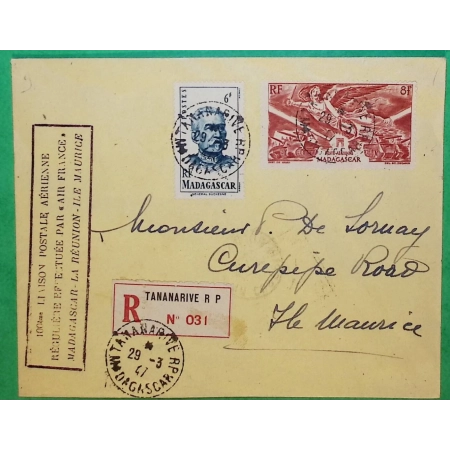 100ème LIAISON POSTALE AÉRIENNE
RÉGULIÈRE EFFECTUÉE PAR « AIR FRANCE »
MADAGASCAR-LA RÉUNION-ILE MAURICE
POSTES
6F
RF
MADAGASCAR
GÉNÉRAL DUCHESNE
TANANARIVE RP
29 -3
MADAGASCAR
RF
8F
MADAGASCAR
Monsieur P. De Sornay
Curepipe Road
Ile Maurice
R
TANANARIVE R P
N° 031
TANANARIVE RP
29 -3
47
MADAGASCAR